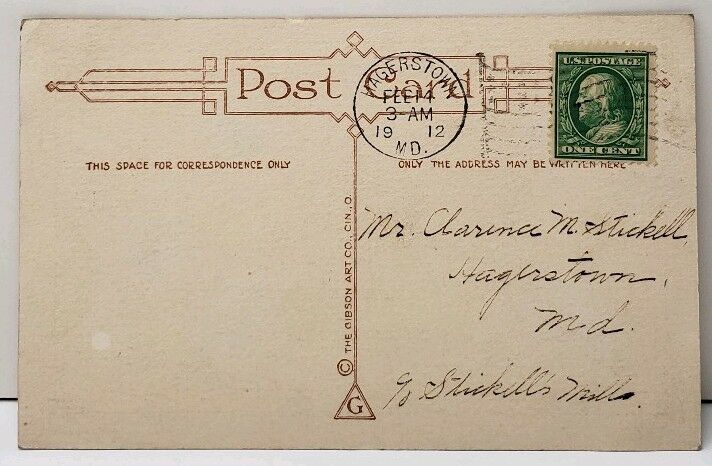 Post Card
HAGERSTOWN
FEB 14
3-AM
19 12
MD.
U.S. POSTAGE
ONE CENT
THIS SPACE FOR CORRESPONDENCE ONLY
ONLY THE ADDRESS MAY BE WRITTEN HERE
© THE GIBSON ART CO., CIN., O.
G
Mr. Clarence M. Stickell,
Hagerstown,
Md.
c/o Stickell's Mills.